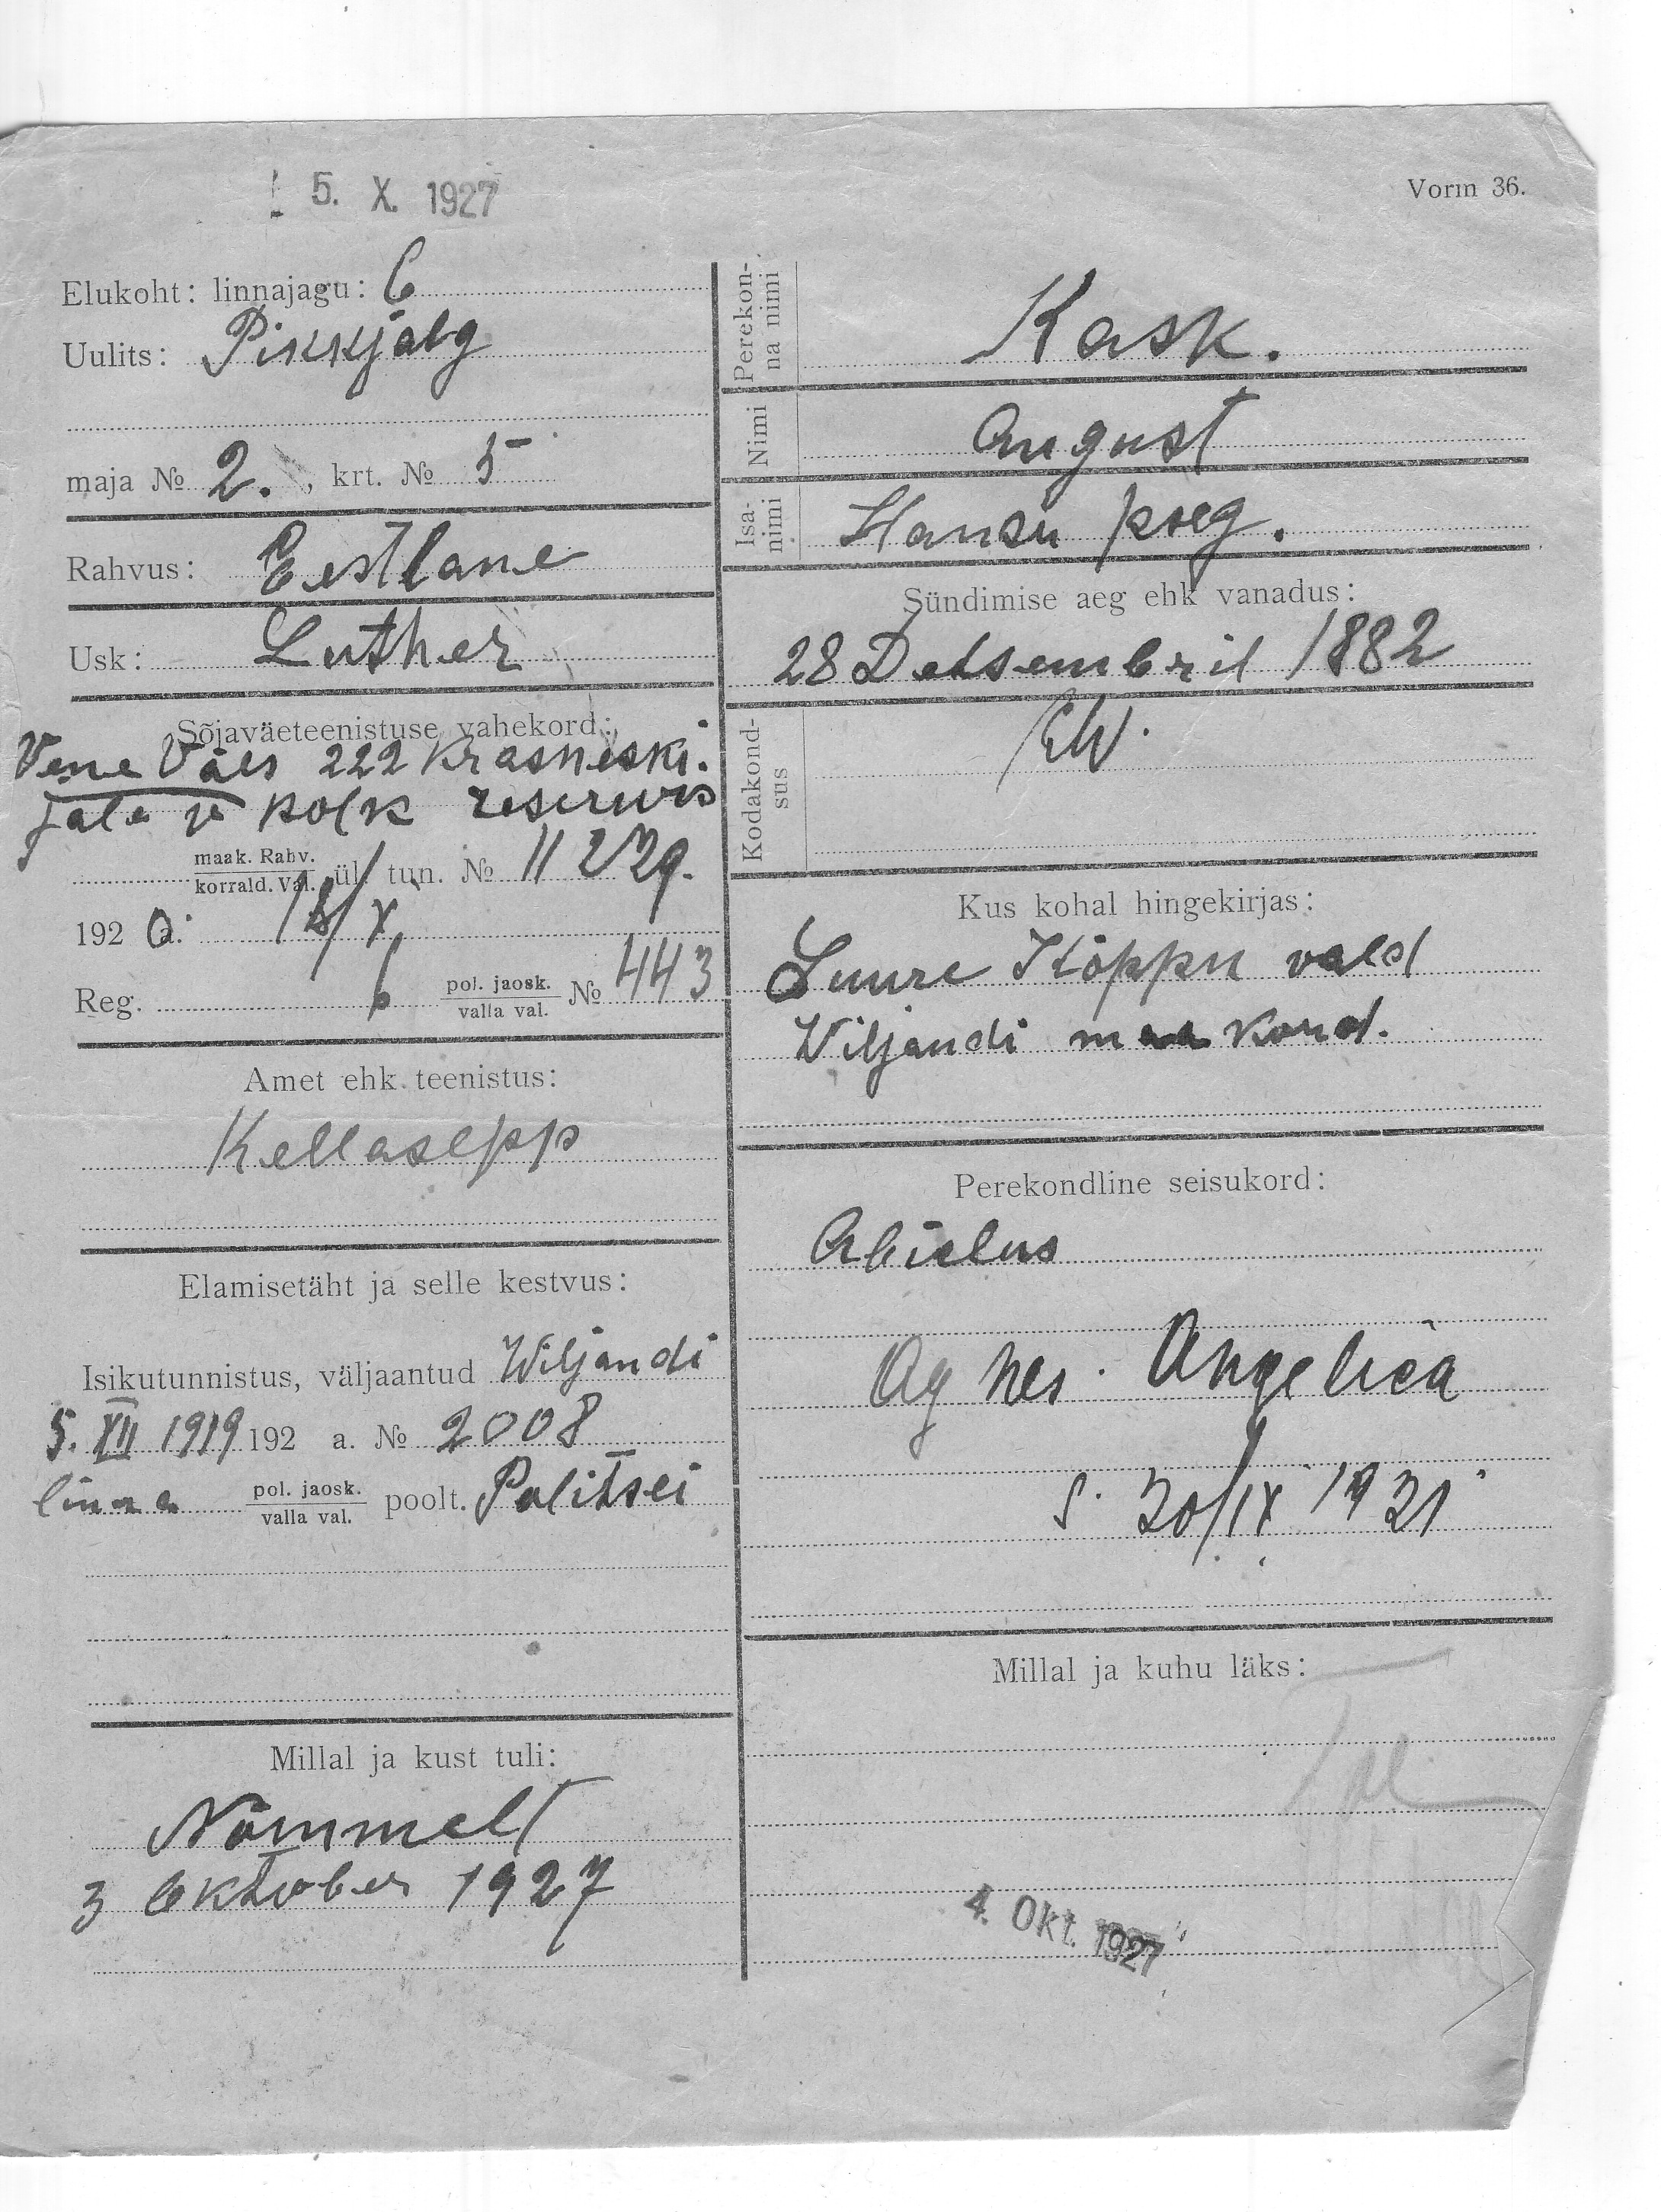 5. X. 1927
Vorm 36.
Elukoht: linnajagu: 6
Uulits: Pikkjalg
maja № 2., krt. № 5
Rahvus: Eestlane
Usk: Luther
Sõjaväeteenistuse vahekord:
Vene Väes 222 Krasneski.
polk reserwis
maak. Rahv.
korrald. Val. ül. tun. № 11229.
1920 a. 18/X
Reg. 6 pol. jaosk. № 443
valla val.
Amet ehk teenistus:
Kellasepp
Elamisetäht ja selle kestvus:
Isikutunnistus, väljaantud Wiljandi
5. XII 1919 192 a. № 2008
linna pol. jaosk. poolt. Politsei
valla val.
Millal ja kust tuli:
Nõmmelt
3 Oktober 1927
Perekon-
na nimi
Kask.
Nimi
August
Isa-
nimi
Hansu poeg.
Sündimise aeg ehk vanadus:
28 Detsembril 1882
Kodakond-
sus
EW.
Kus kohal hingekirjas:
Suure Kõppu vald
Wiljandi maakond.
Perekondline seisukord:
Abielus
Agnes. Angelica
s. 30/IX 1921
Millal ja kuhu läks:
4. Okt. 1927